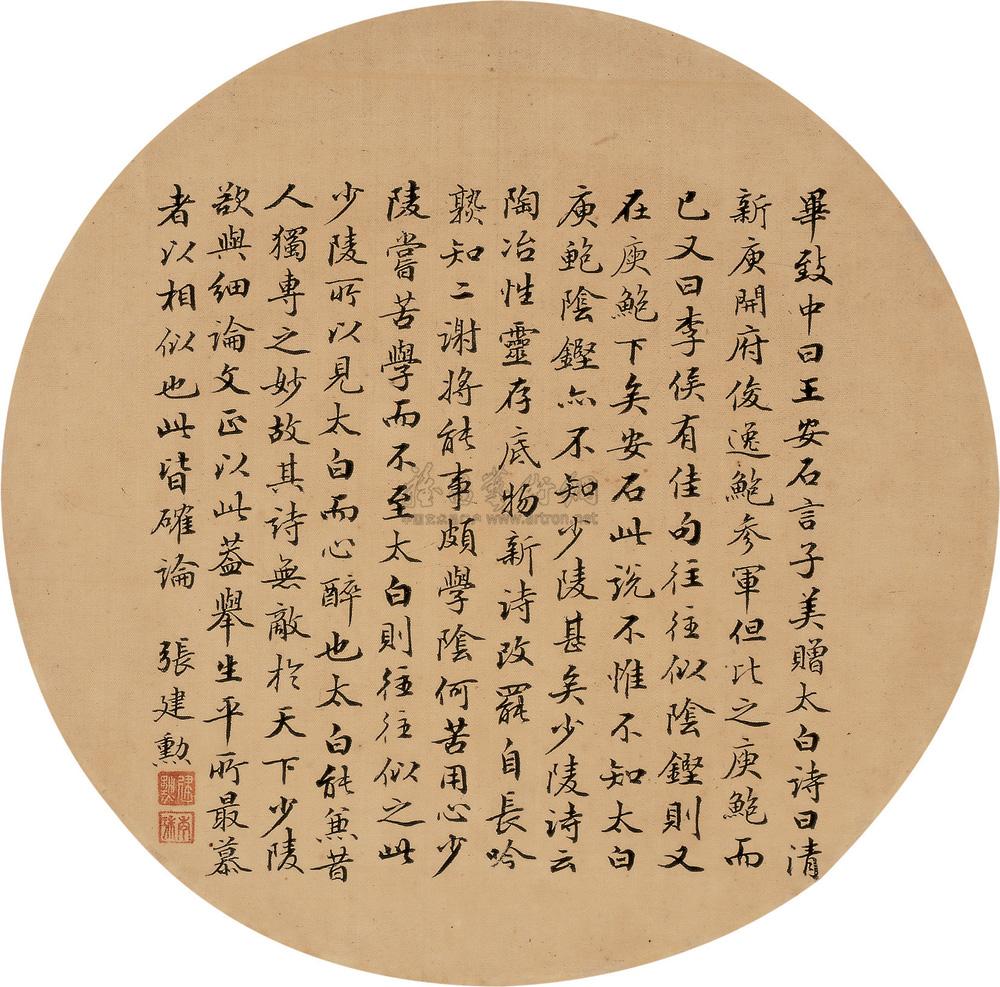 畢致中曰王安石言子美贈太白詩曰清
新庾開府俊逸鮑參軍但比之庾鮑而
已又曰李侯有佳句往往似陰鏗則又
在庾鮑下矣安石此說不惟不知太白
庾鮑陰鏗亦不知少陵甚矣少陵詩云
陶冶性靈存底物新詩改罷自長吟
孰知二謝將能事頗學陰何苦用心少
陵嘗苦學而不至太白則往往似之此
少陵所以見太白而心醉也太白能兼昔
人獨專之妙故其詩無敵於天下少陵
欲與細論文正以此蓋舉生平所最慕
者以相似也此皆確論 張建勳
www.artron.net